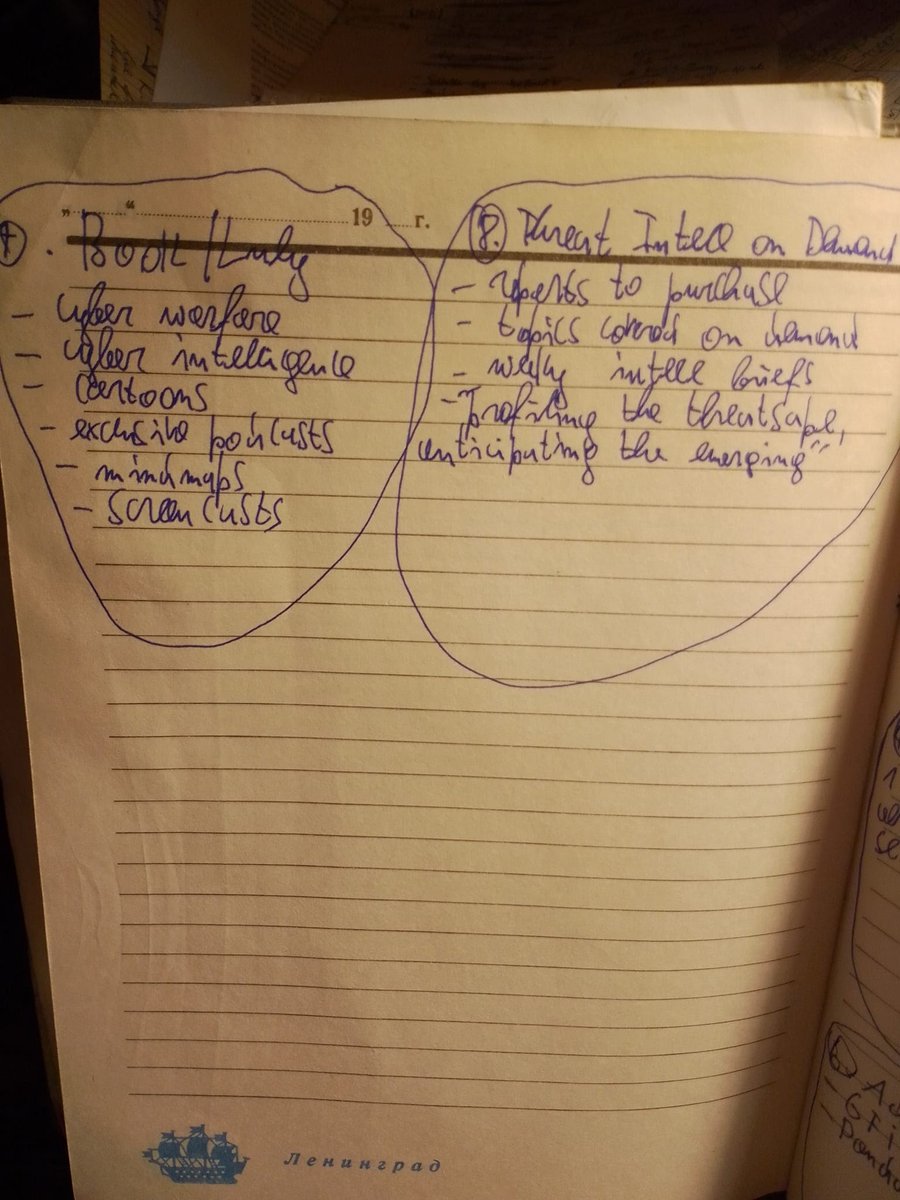 „ “ 19 г.
7. Book/Lulu
- Cyber warfare
- Cyber intelligence
- Cartoons
- exclusive podcasts
- mindmaps
- Screencasts
8. Threat Intell on Demand
- reports to purchase
- topics covered on demand
- weekly intell briefs
- "Profiling the threatscape,
anticipating the emerging"
Ленинград
1
se
6
- GFi